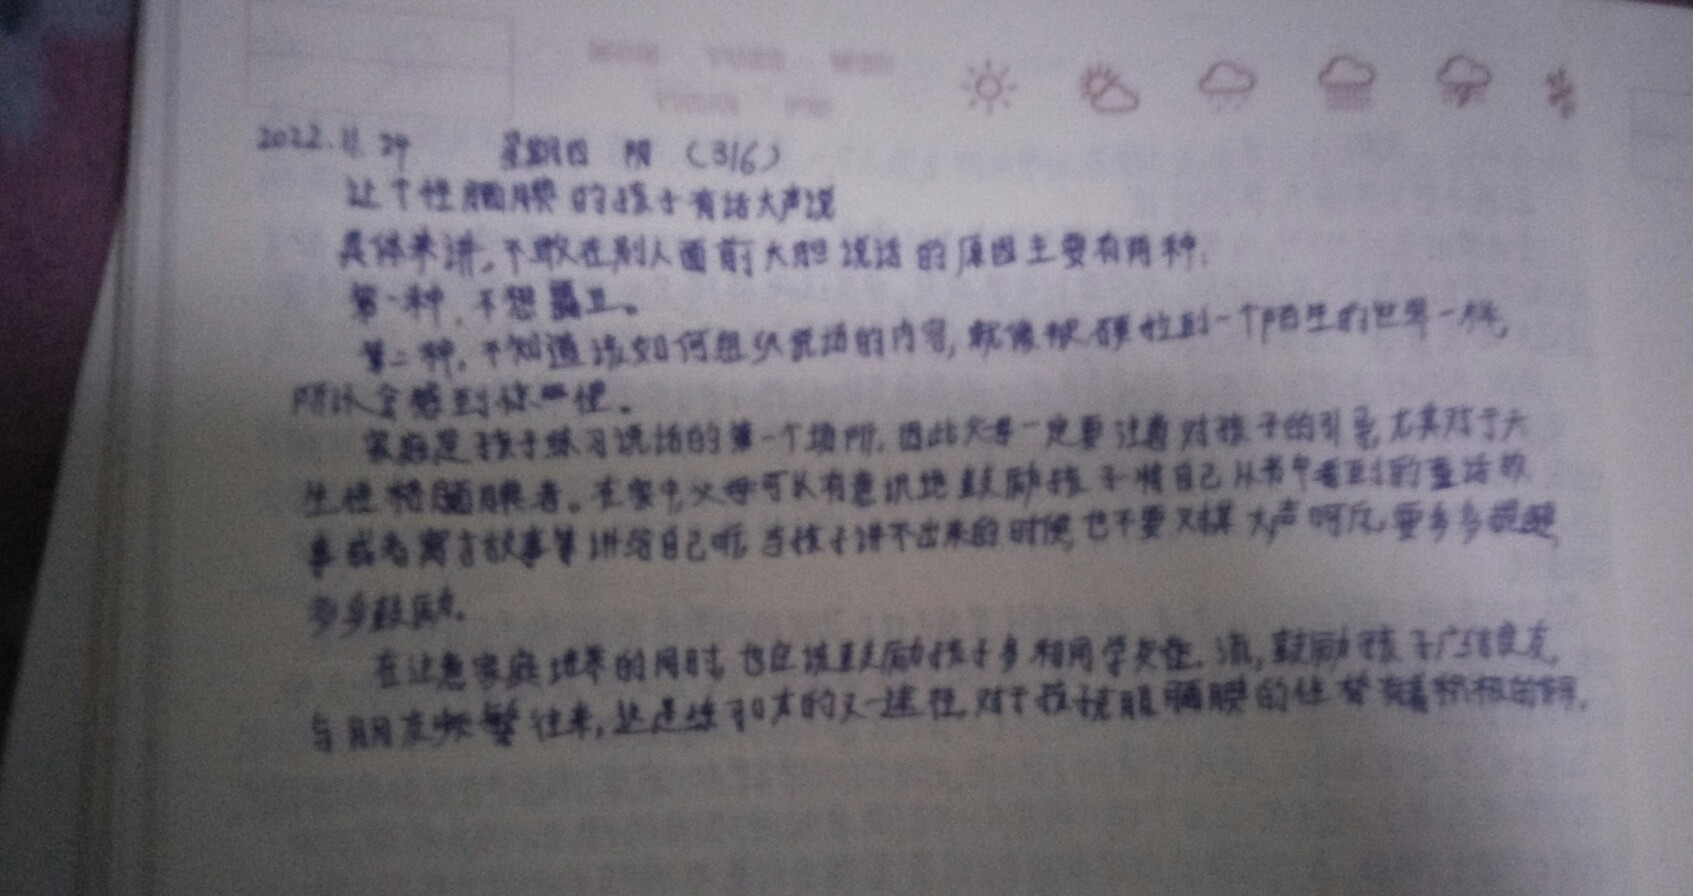 MON TUES WED
THUR FRI
2022.11.24 星期四 阴 (316)
让个性腼腆的孩子有话大声说
具体来讲,不敢在别人面前大胆说话的原因主要有两种:
第一种,不想露丑。
第二种,不知道该如何组织说话的内容,就像被硬拉到一个陌生的世界一样,
所以会感到
家庭是孩子练习说话的第一个场所,因此父母一定要注意对孩子的引导,尤其对于天
生性格腼腆者。在家中,父母可以有意识地鼓励孩子将自己从书中看到的童话故
事或者寓言故事等讲给自己听,当孩子讲不出来的时候,也不要对其大声呵斥,要多多提醒,
多多鼓励。
在注意家庭培养的同时,也应该鼓励孩子多和同学交往、交流,鼓励孩子广结良友,
与朋友频繁往来,这是练习口才的又一途径,对于孩子克服腼腆的性格有着积极的作用。